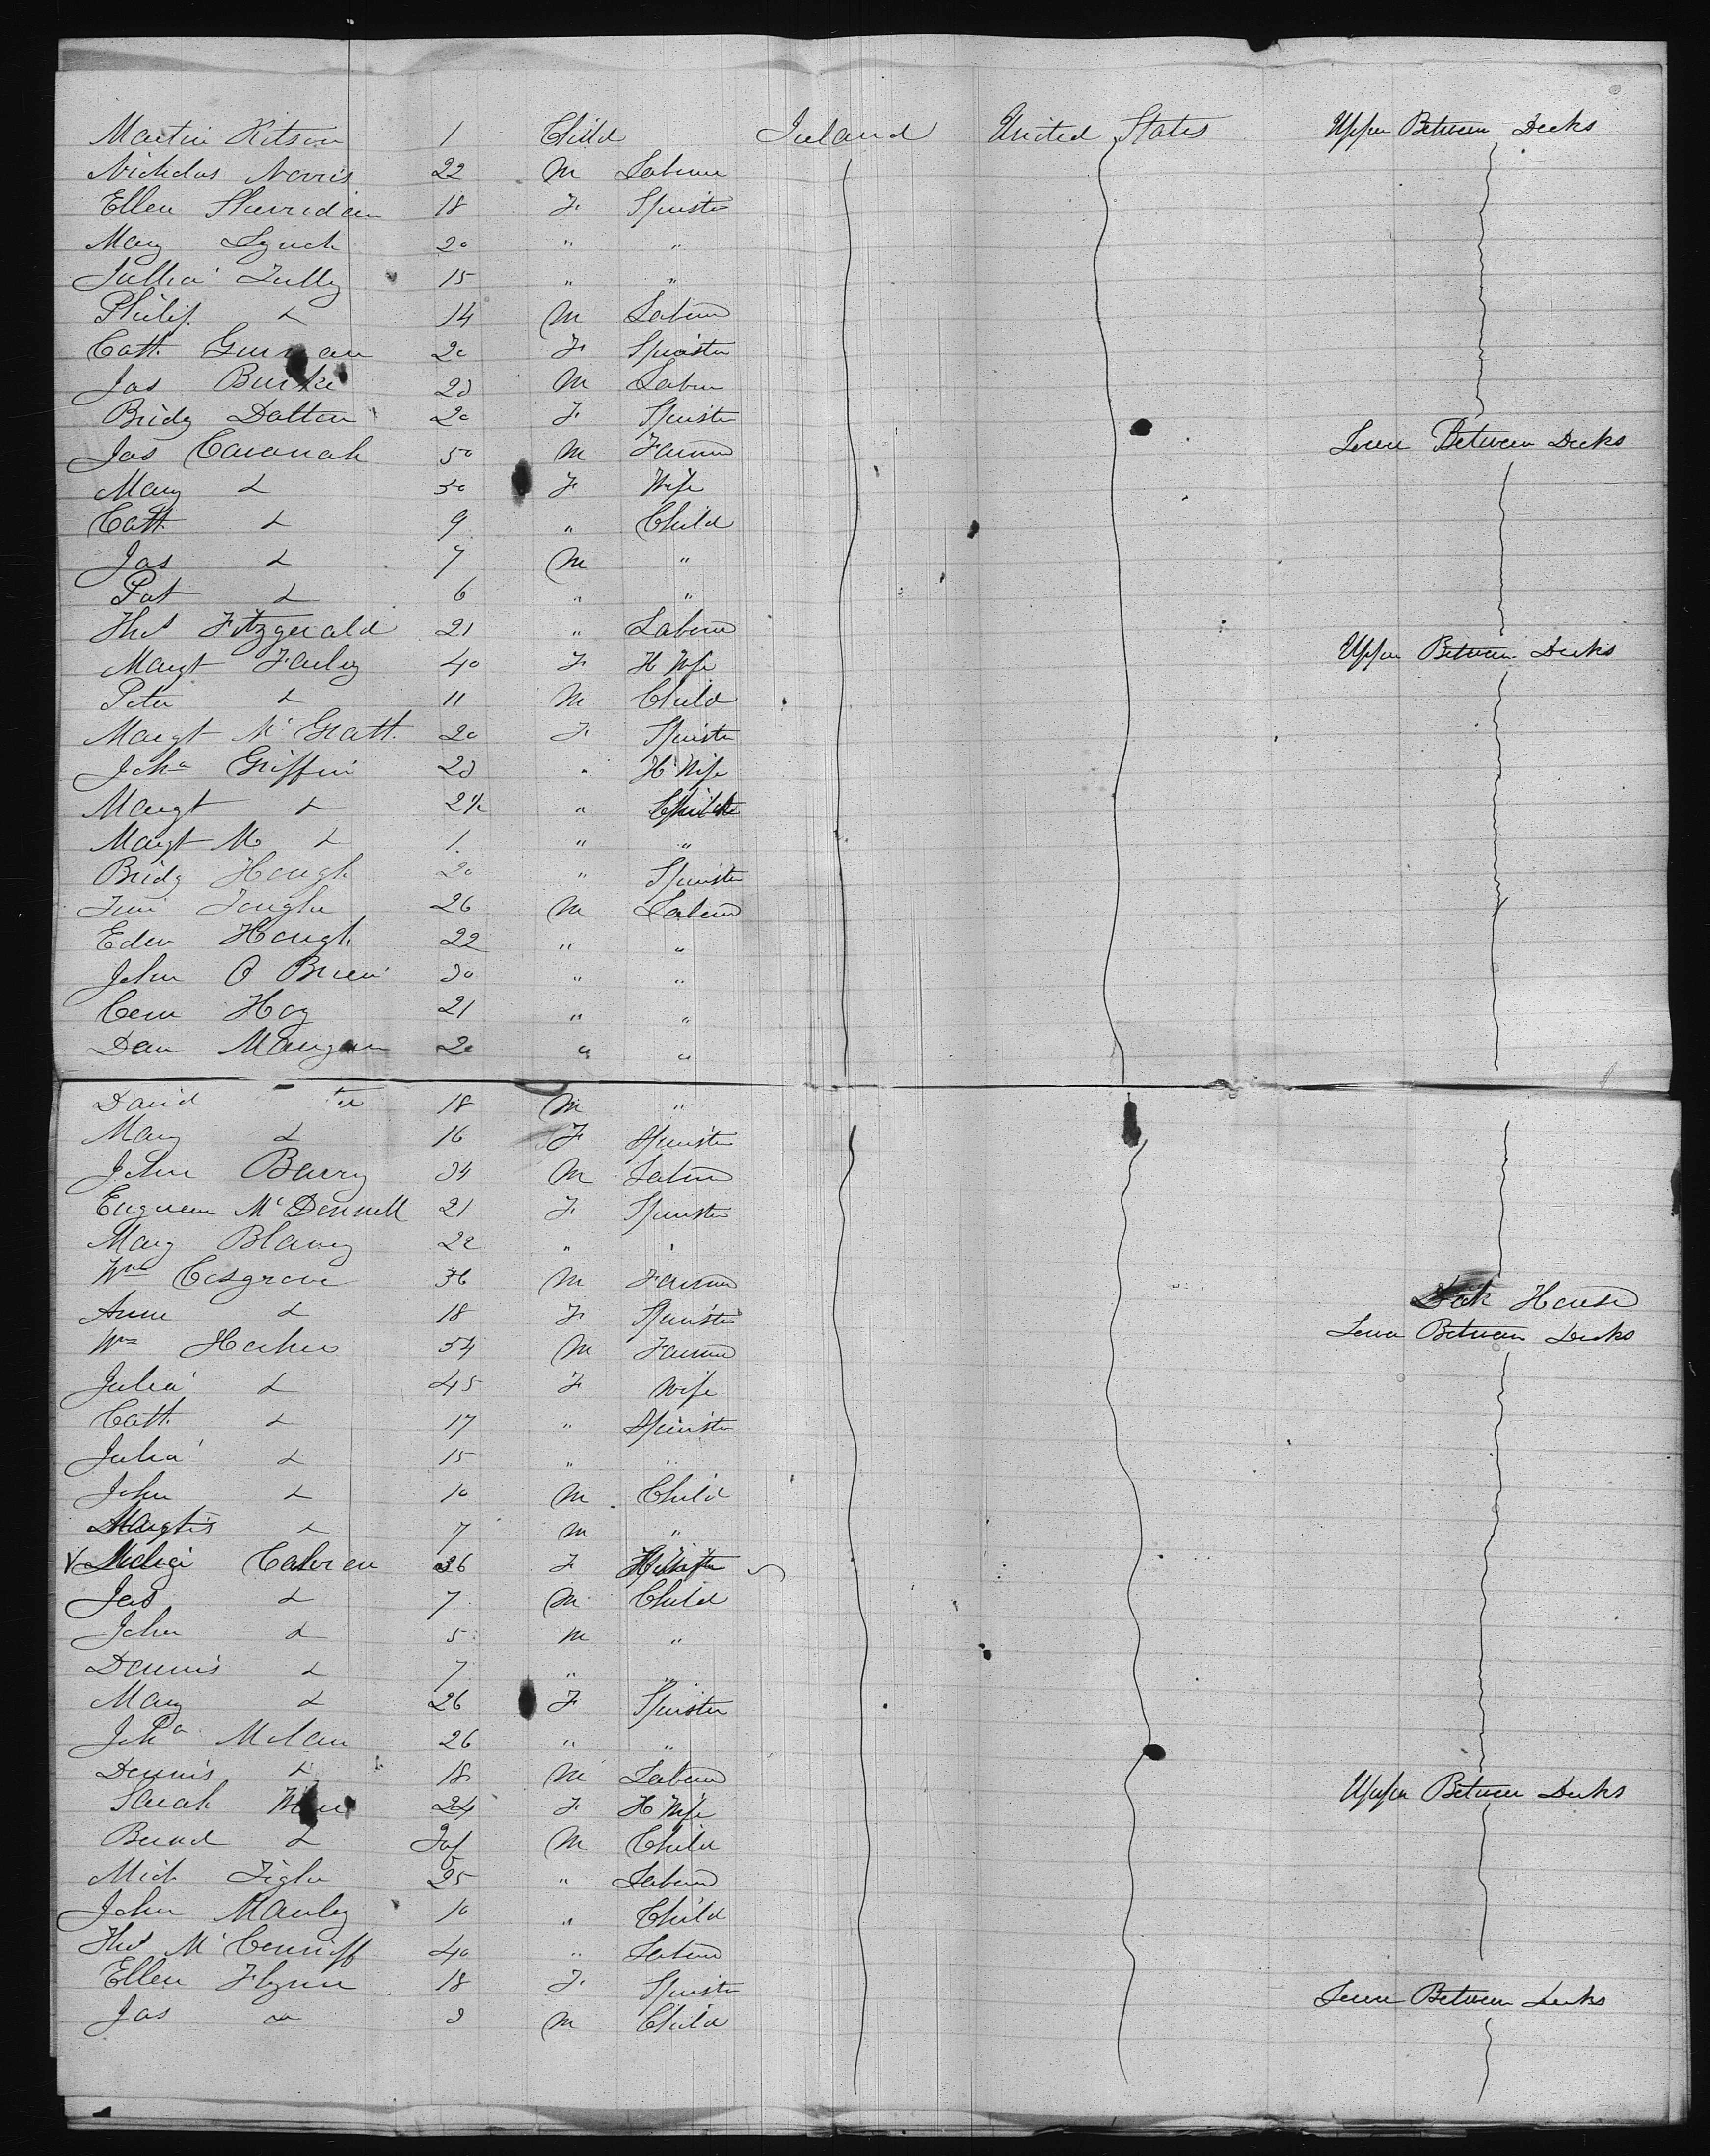 Martin Kitson 1 Child Ireland United States Upper Between Decks
Nicholas Norris 22 M Laborer
Ellen Sherridan 18 F Spinster
Mary Lynch 20 " "
Julia Tully 15 " "
Philip d 14 M Laborer
Cath 20 F Spinster
Jas Burke 20 M Labor
Bridg Dalton 20 F Spinster
Jas Cavanah 50 M Farmer Lower Between Decks
Mary d 50 F Wife
Cath d 9 " Child
Jas d 7 M "
Pat d 6 " "
Thos Fitzgerald 21 " Laborer
Margt Farley 40 F H Wife Upper Between Decks
Peter d 11 M Child
Margt McGrath 20 F Spinster
Joha Griffin 20 " H Wife
Margt d 2½ " Child
Margt M d 1 " "
Bridg Hough 20 " Spinster
26 M Laborer
Edw Hough 22 " "
John O Brien 30 " "
Corn Hoy 21 " "
Dan Mangan 20 " "
David do 18 M "
Mary d 16 F Spinster
John Barry 34 M Laborer
McDonnell 21 F Spinster
Mary Blaney 22 " "
Wm Cosgrove 36 M Farmer
Anne d 18 F Spinster Deck House
Wm 54 M Farmer Lower Between Decks
Julia d 45 F Wife
Cath d 17 " Spinster
Julia d 15 " "
John d 10 M Child
d 7 M "
36 F
Jas d 7 M Child
John d 5 M "
Dennis d 7 " "
Mary d 26 F Spinster
Joha 26 " "
Dennis d 18 M Laborer
Sarah 24 F H Wife Upper Between Decks
Bernd d Inf M Child
Mich 25 " Laborer
John Manley 10 " Child
Thos 40 " Laborer
Ellen Flynn 18 F Spinster
Jas do 3 M Child Lower Between Decks